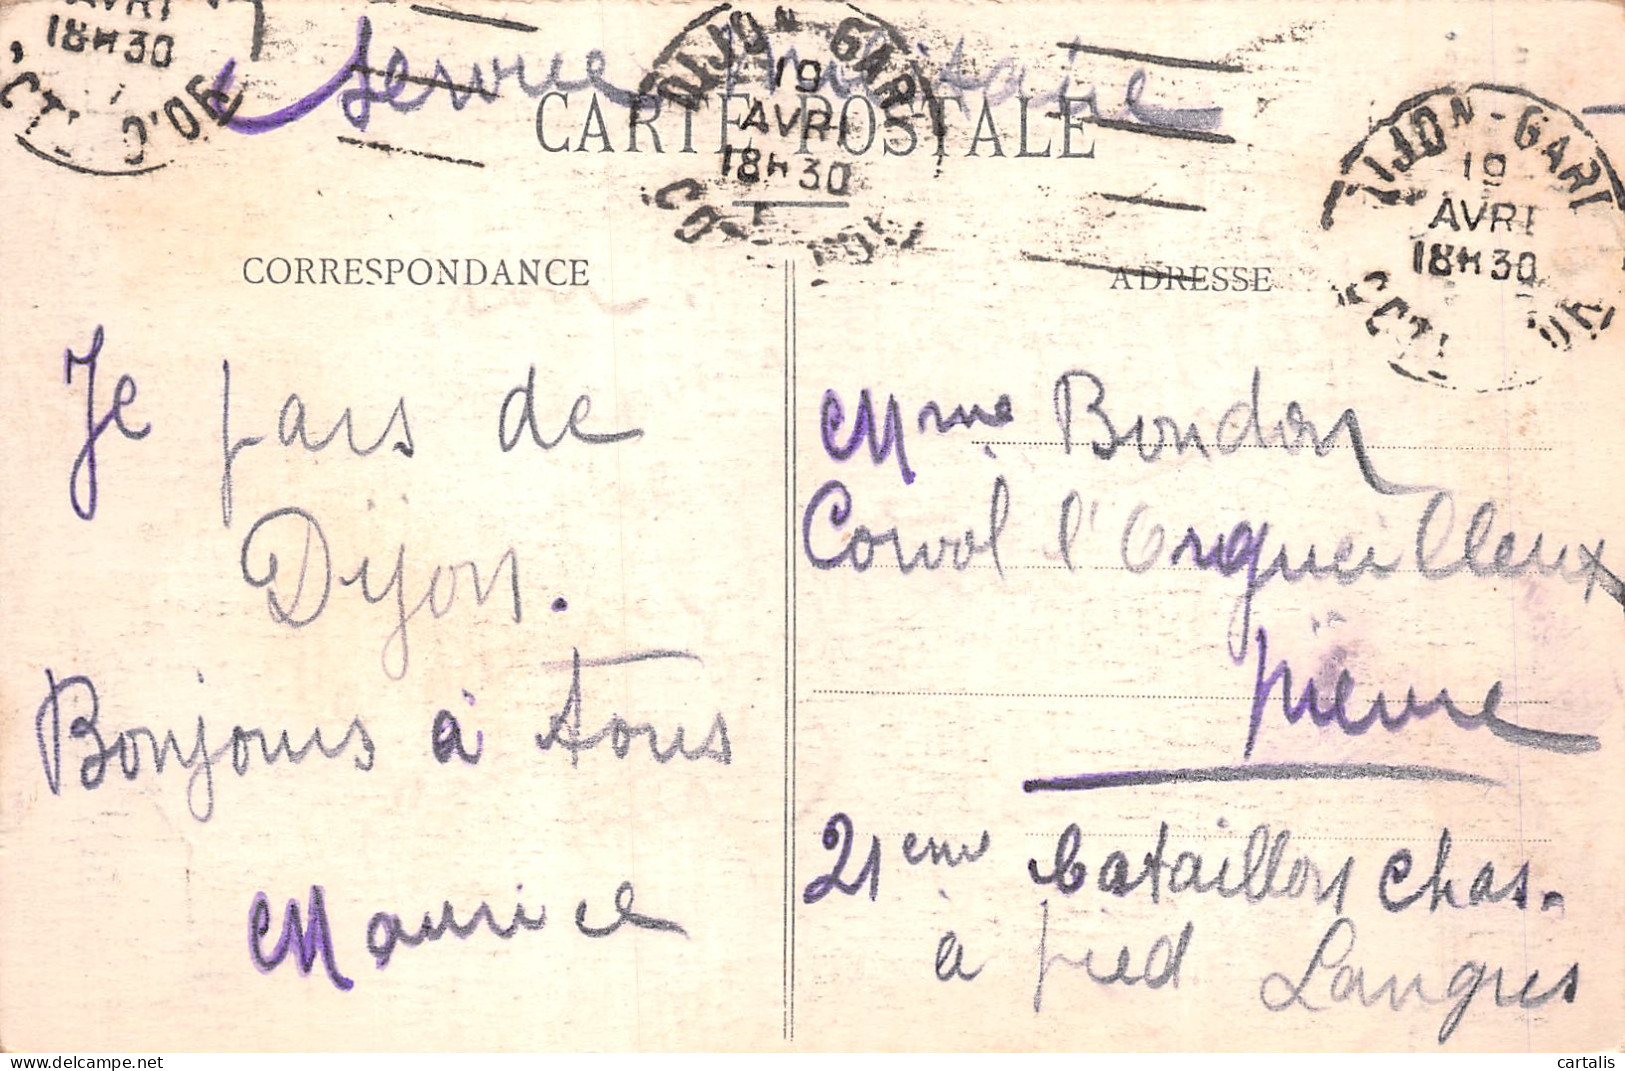 Service Militaire
CARTE POSTALE
AVRI
18H30
DIJON-GARE
19
AVRI
18H30
CÔTE D'OR
DIJON-GARE
19
AVRI
18H30
CORRESPONDANCE
ADRESSE
Je pars de
Dijon.
Bonjours à tous
Maurice
Mme Bondon
Corvol l'Orgueilleux
Nièvre
21eme bataillon Chas.
à pied Langres
cartalis www.delcampe.net